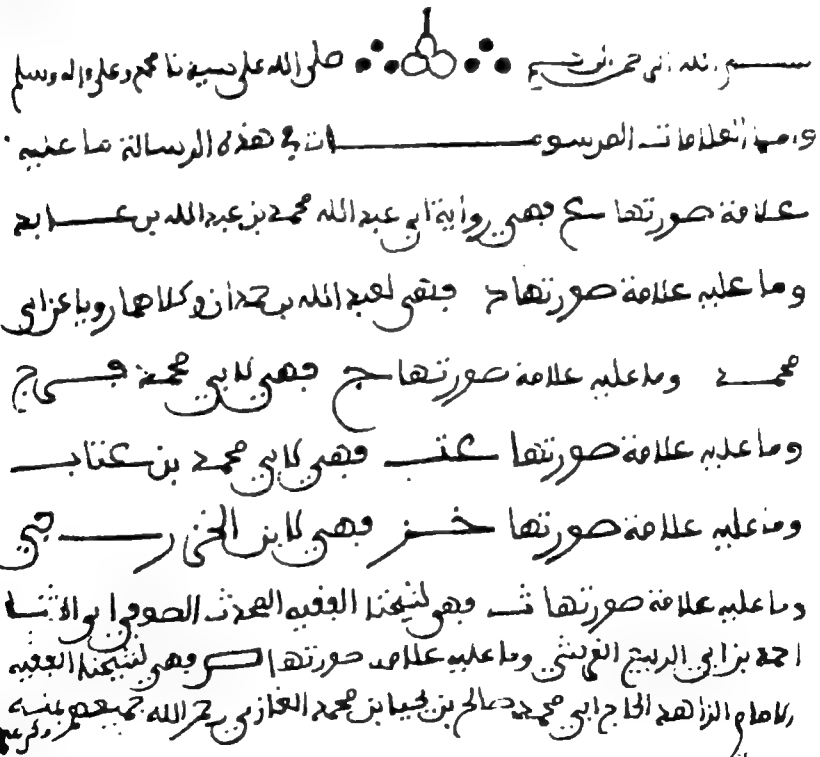 بسم الله الرحمن الرحيم صلى الله على سيدنا محمد وعلى ءاله وسلم
العلامات المرسومات في هذه الرسالة ما عليه
علامة صورتها ع فهي رواية أبي عبد الله محمد بن عبد الله بن عابد
وما عليه علامة صورتها د فهي لعبد الله بن حمدان وكلاهما رويا عن أبي
محمد وما عليه علامة صورتها ج فهي لأبي محمد فرج
وما عليه علامة صورتها عتب فهي لأبي محمد بن عتاب
وما عليه علامة صورتها خز فهي لابن الخزرجي
وما عليه علامة صورتها ث فهو لشيخنا الفقيه المحدث الصوفي أبو الثنا
احمد بن أبي الربيع القريشي وما عليه علامة صورتها فهي لشيخنا الفقيه
الامام الزاهد الحاج أبي محمد صالح بن يحيا بن محمد رحم الله جميعهم بمنه وكرمه